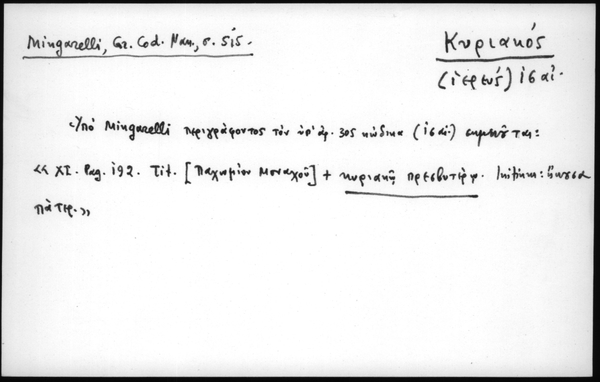 Mingarelli, Gr. Cod. Nan., σ. 515.
Κυριακός
(ἱερεύς) 16 αἰ.
Ὑπό Mingarelli περιγράφοντος τόν ὑπ' ἀρ. 305 κώδικα (16 αἰ.) σημειοῦται:
« XI. Pag. 192. Tit. [Παχωμίου Μοναχοῦ] + κυριακῷ πρεσβυτέρῳ. Initium: ἤκουσα
πάτερ. »